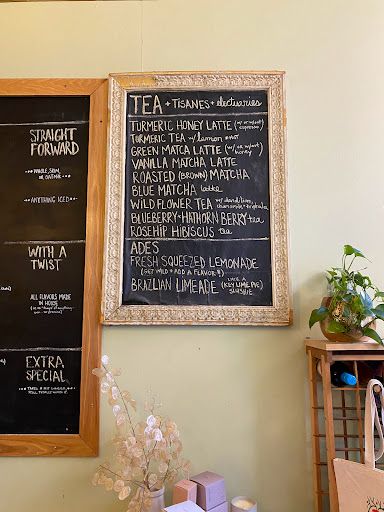 STRAIGHT
FORWARD
WHOLE, SKIM,
OR OATMILK
ANYTHING ICED
WITH A
TWIST
ALL FLAVORS MADE
IN HOUSE
EXTRA
SPECIAL
TEA + TISANES + electuaries
TURMERIC HONEY LATTE (w/ or w/out espresso)
TURMERIC TEA w/ lemon
GREEN MATCA LATTE (w/ or w/out honey)
VANILLA MATCHA LATTE
ROASTED (BROWN) MATCHA
BLUE MATCHA latte
WILD FLOWER TEA w/ dandelion,
BLUEBERRY + HATHORN BERRY tea
ROSEHIP HIBISCUS tea
ADES
FRESH SQUEEZED LEMONADE
(GET WILD + ADD A FLAVOR!)
BRAZLIAN LIMEADE LIKE A (KEY LIME PIE) SLUSHIE